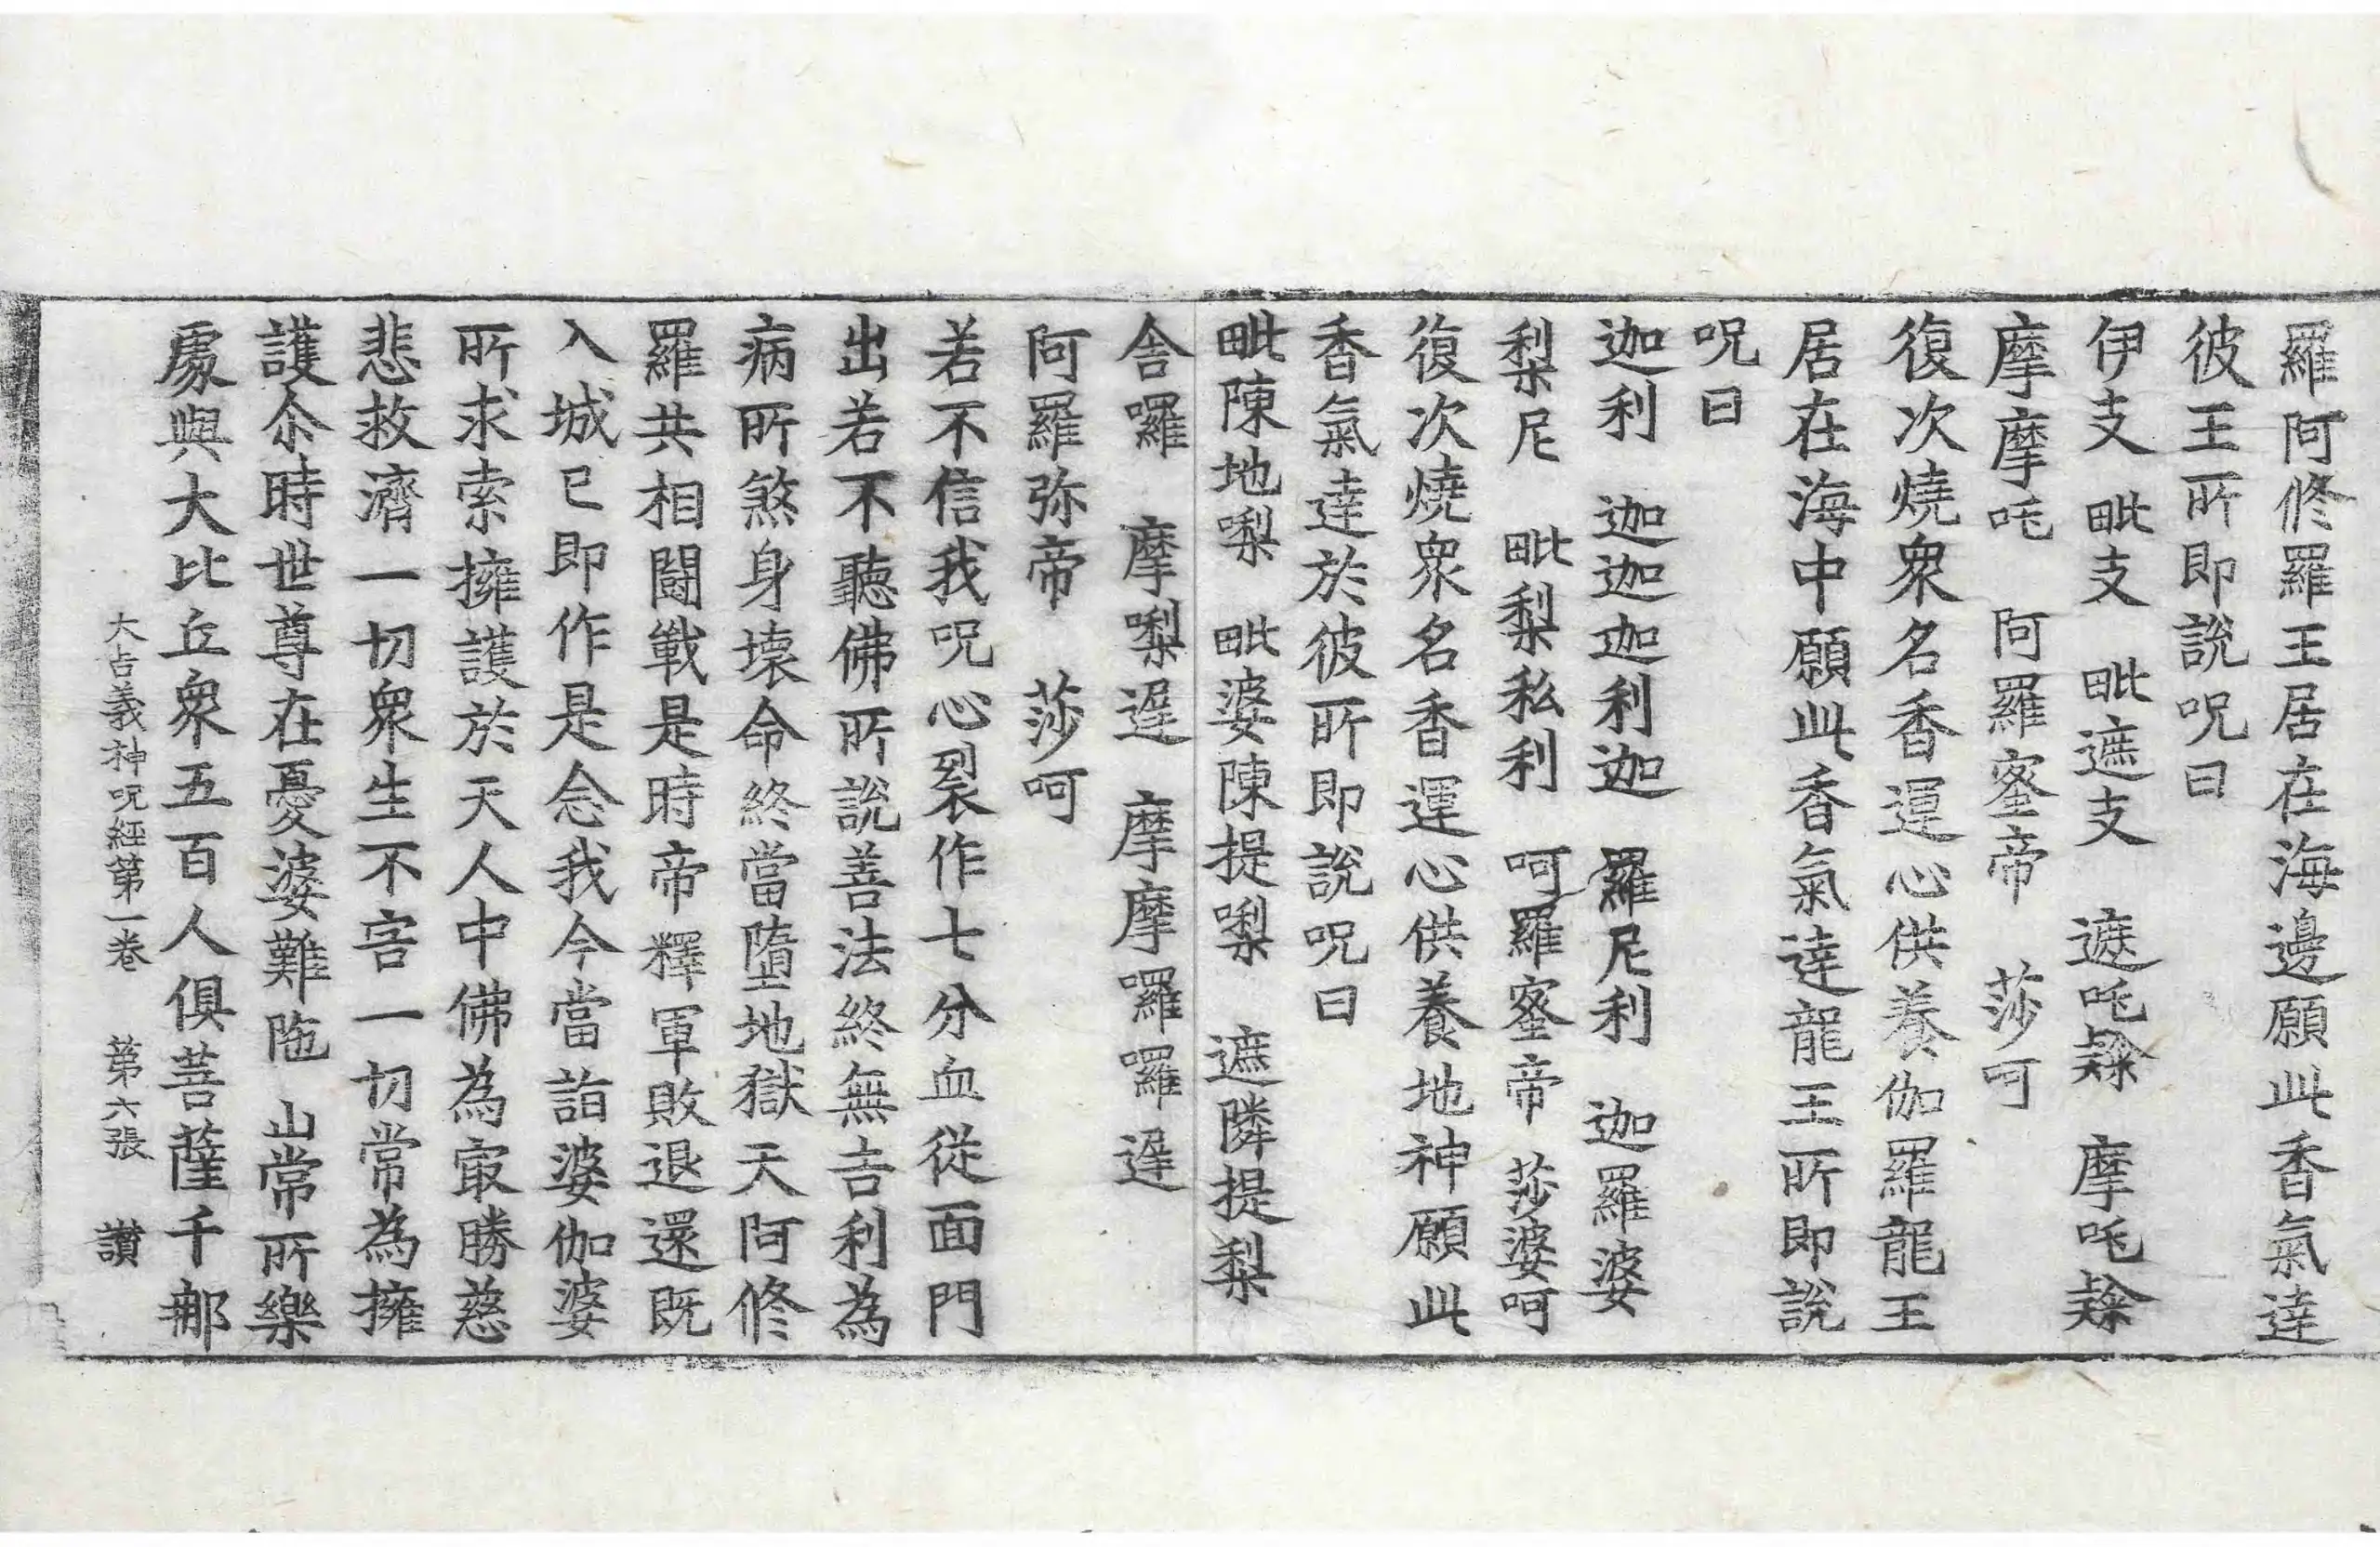 羅阿修羅王居在海邊願此香氣達
彼王所即說呪曰
伊支　毗支　毗遮支　遮吒　摩吒
摩摩吒　阿羅蜜帝　莎呵
復次燒衆名香運心供養伽羅龍王
居在海中願此香氣達龍王所即說
呪曰
迦利　迦迦迦利迦　羅尼利　迦羅婆
梨尼　毗梨私利　呵羅蜜帝　莎婆呵
復次燒衆名香運心供養地神願此
香氣達於彼所即說呪曰
毗陳地㗚　毗婆陳提㗚　遮隣提梨
舍囉　摩㗚遲　摩摩囉囉遲
阿羅弥帝　莎呵
若不信我呪心裂作七分血從面門
出若不聽佛所說善法終無吉利為
病所煞身壞命終當墮地獄天阿修
羅共相鬪戰是時帝釋軍敗退還既
入城已即作是念我今當詣婆伽婆
所求索擁護於天人中佛為冣勝慈
悲救濟一切衆生不恡一切常為擁
護尒時世尊在憂婆難陁山常所樂
處與大比丘衆五百人俱菩薩千那
大吉義神呪經第一卷　第六張　讃